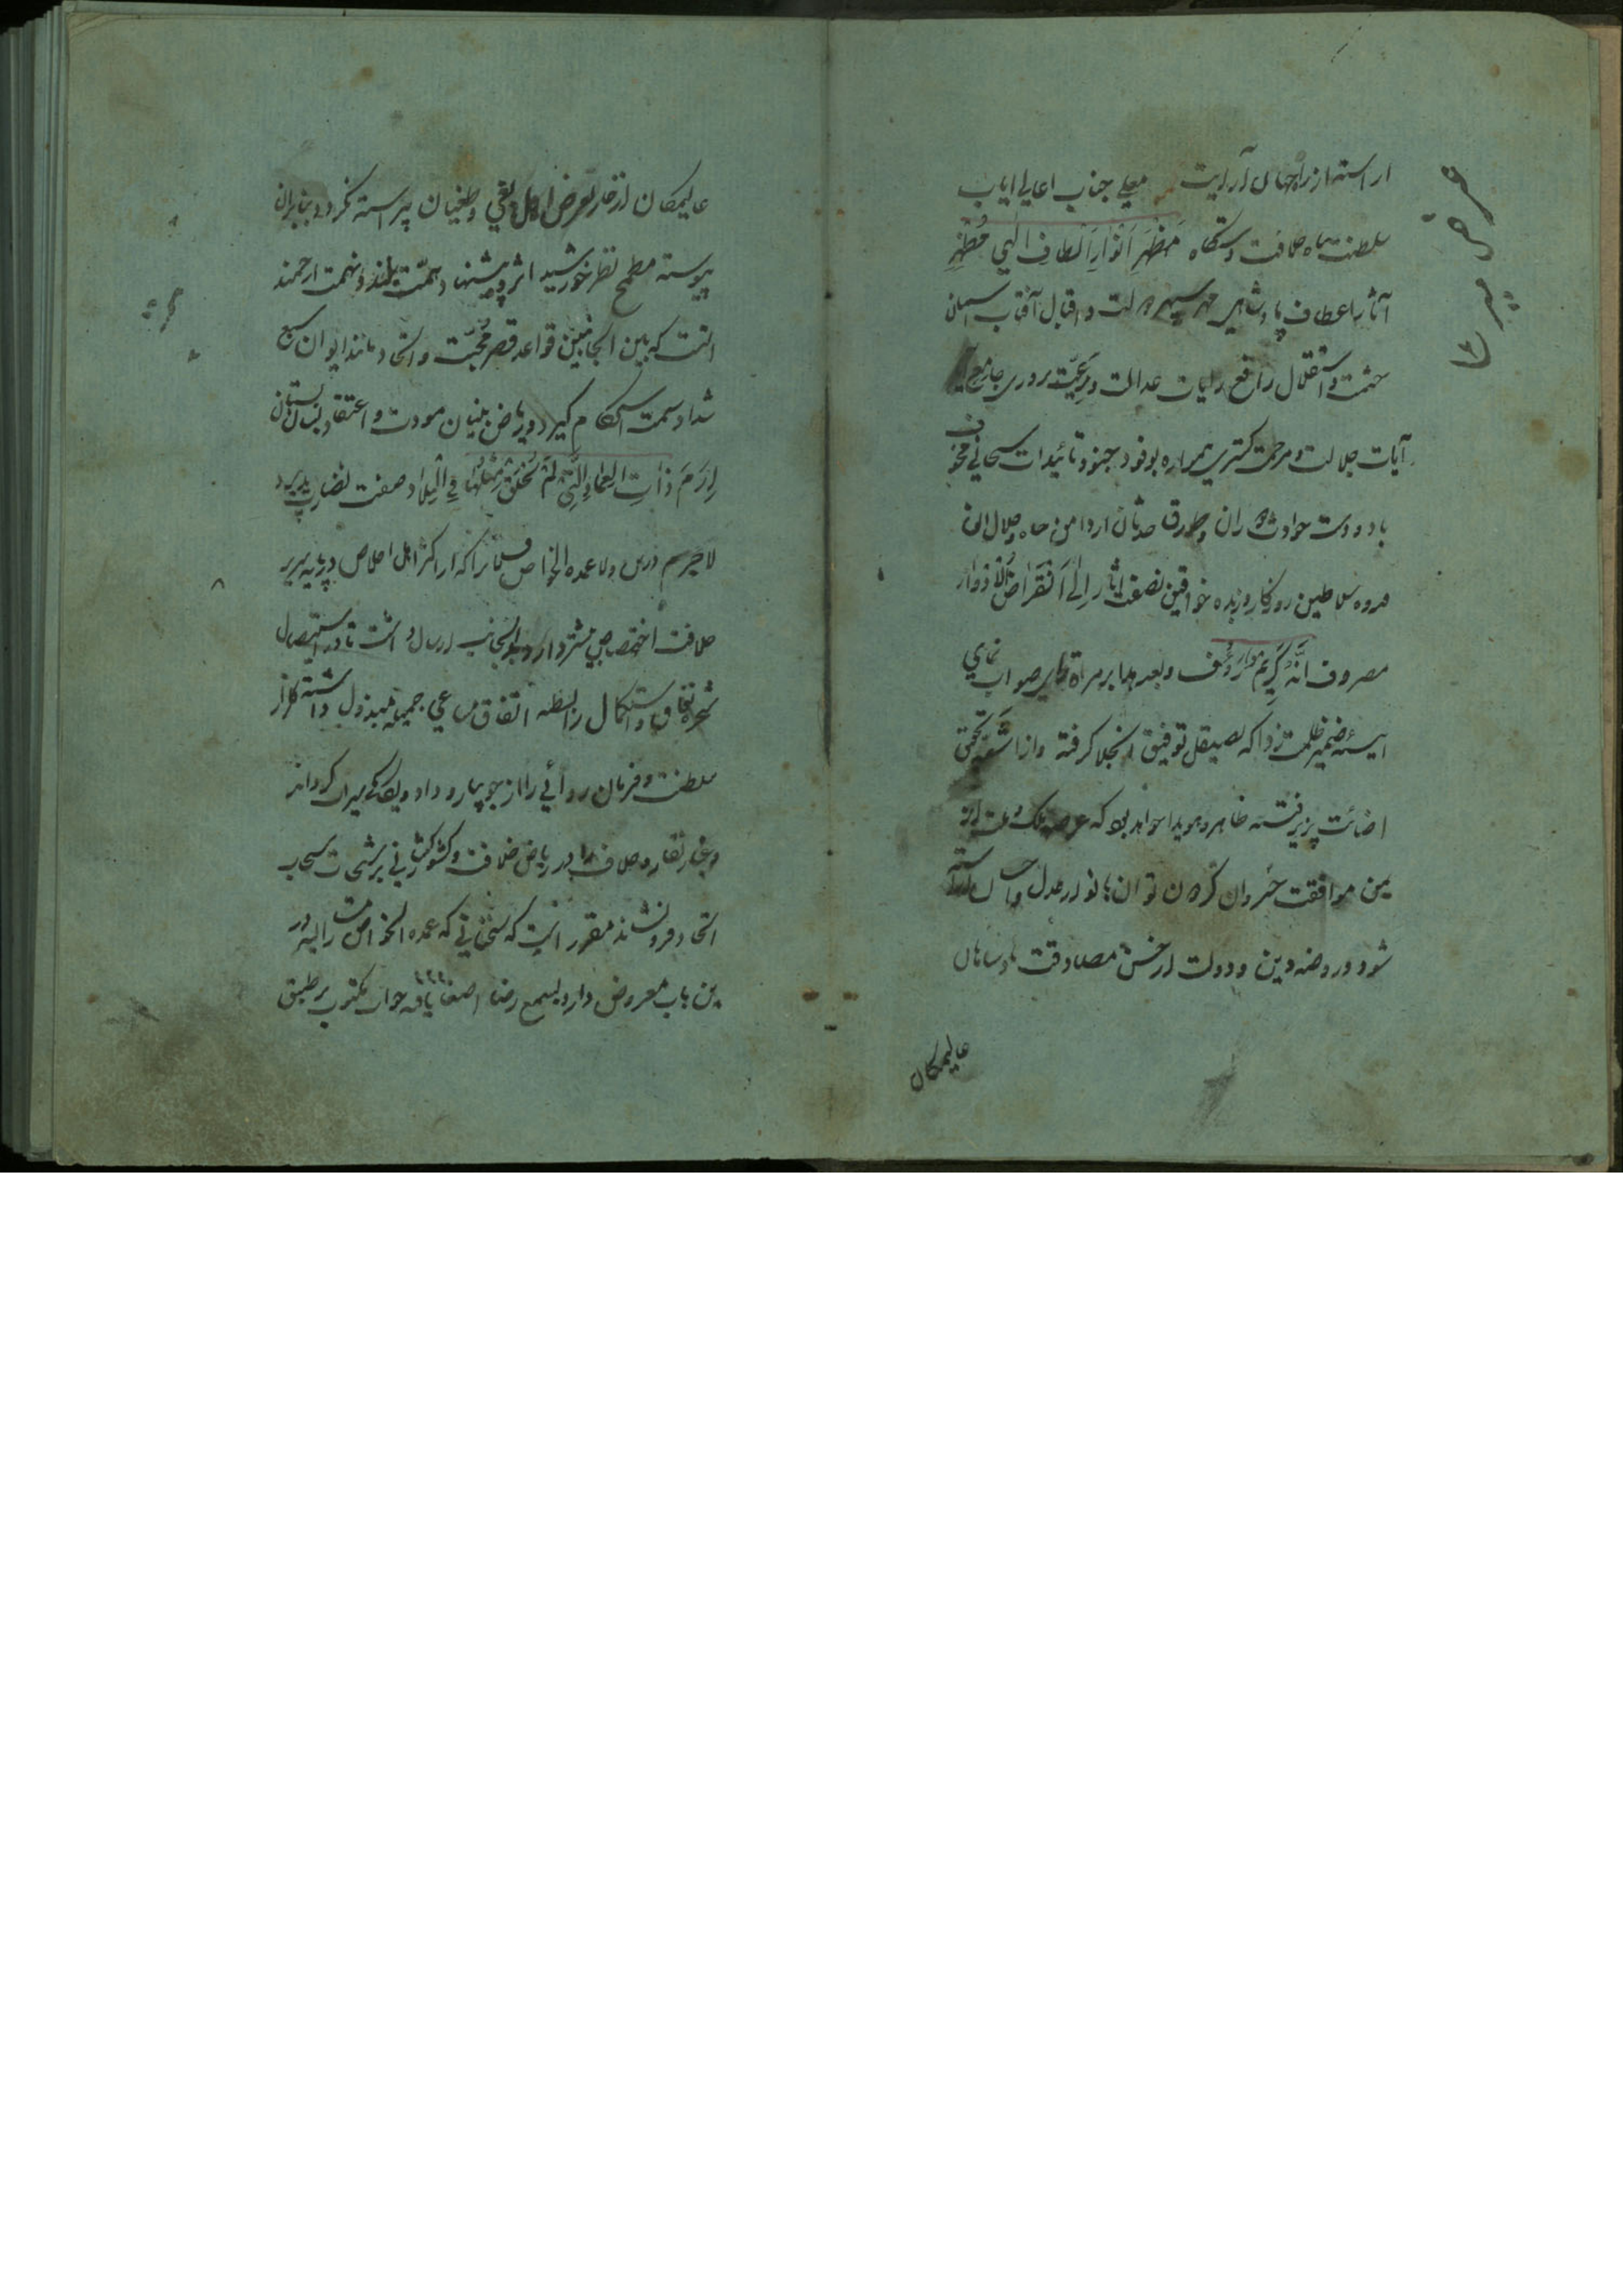 اراسته از راه جهان آرایت معلی جناب اعالی ایاب
سلطنت پناه خلافت دستگاه مَظهَرِ اَنوارِ اَلطافِ الٰهی مُظهِرِ
آثار اعطاف پادشاهی مهر سپهر دولت و اقبال آفتاب آسمان
حشمت و استقلال رافع رایات عدالت و رعیّت پروری جامع
آیات جلالت و مرحمت کستری همواره بوفود جنود تائیدات سبحانی محفوف
باد و دست حوادث دوران و طوارق حدثان از دامن جاه و جلال ان
قدوه سلاطین روزکار و زبده خواقین نصفت اثار اِلی اَنقراضِ الاَدوار
مصروف انّه کریم رؤف و بعد هذا بر مراة رای صواب نمای
آیینهٔ ضمیر ظلمت زدا که بصیقل توفیق انجلا کرفته و از اشعهٔ تحقیق
اضائت پذیرفته ظاهر و هویدا خواهد بود که عرصه ملک و ملت از
یمن موافقت خسروان کردن توان بانوار عدل و احسان اراسته
شود و روضه دین و دولت از حسن مصادقت پادشاهان
عالیمکان
عرض میرت
عالیمکان از خار تعرض اهل بغی و طغیان پیراسته کردد بنابران
پیوسته مطمح نظر خورشید اثر و پیشنهاد همّت بلند و نهمت ارجمند
انست که بین الجانبین قواعد قصر محبّت و اتحاد مانند ایوان سبع
شداد سمت استحکام کیرد و ریاض بنیان مودت و اعتقاد بسان بستان
اِرَمَ ذاتِ العِمادِ الَّتی لَم یُخلَق مِثلُها فِی البِلاد صفت نضارت پذیرد
لاجرم درین ولا عمده الخواص فلانرا که از اکثر اهل اخلاص در پایه سریر
خلافت اختصاص بیشتر دارد بدانجانب ارسال داشت تا در استیصال
شجره نفاق و استکمال رابطه اتفاق مساعی جمیله مبذول داشته کلزار
سلطنت و فرمان روائی را از جویبار وداد و یکانکی سیراب کرداند
و غبار نقار و خلاف را در ریاض خلافت و کشورکشائی برشحات سحاب
اتحاد فرو نشاند مقرر انست که سخنانی که عمده الخواص مشارالیه در
این باب معروض دارد بسمع رضا اصغا یافته جواب مکتوب بر طبق